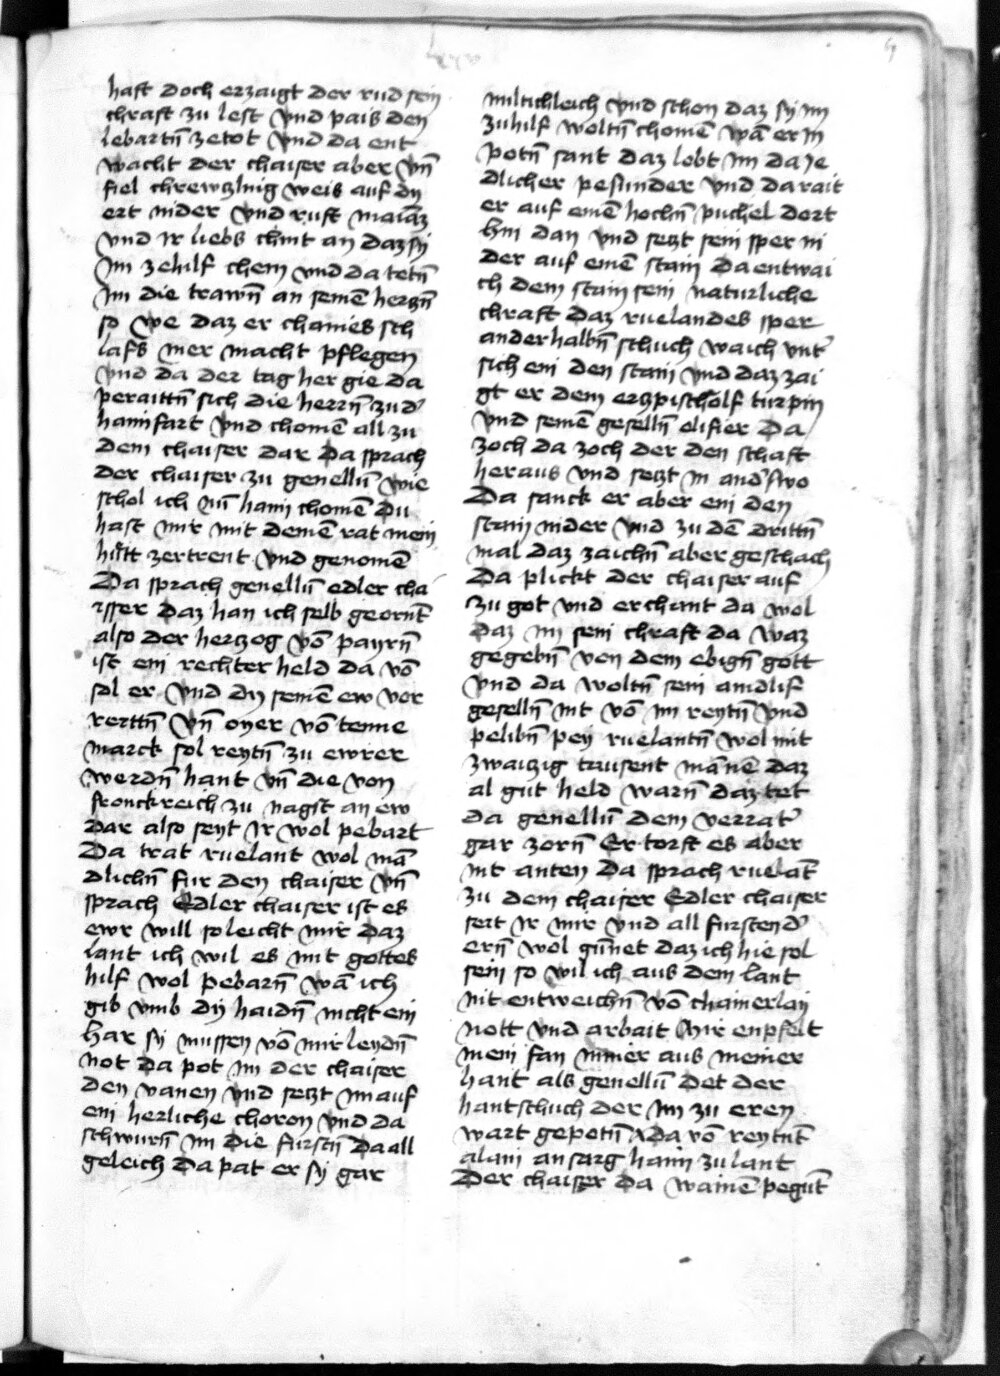 haft doch erzaigt der rud sein
chraft zu lest vnd pais den
lebartn̄ zetot vnd da ent
wacht der chaiser aber vn̄
fiel chrewczlnig weis auf dy
ert nider vnd ruft maiam
vnd Ir liebs chint an daz sy
Im zehilf chem vnd da tetn̄
Im die trawn̄ an seinē herczn̄
so we daz er chaines sch
lafs mer macht pflegen
vnd da der tag her gie da
peraittn̄ sich die herrn̄ zu d'
hainfart vnd chomē all zu
dem chaiser dar Da sprach
der chaiser zu genellū wie
schol ich nū haim chomē du
hast mir mit deinē rat mein
hertz zertrent vnd genomē
Da sprach genellū edler cha
isser daz han ich selb geornt̄
also der herczog vō payrn̄
ist ein rechter held da vō
sol er vnd dy seinē ew vor
rerttn̄ vn̄ oyer vō tenne
marck sol reytn̄ zu ewrer
werdn̄ hant vn̄ die von
fronckreich zu nagst an ew
dar also seyt Ir wol pebart
Da trat ruelant wol mā
dlichn̄ fur den chaiser vn̄
sprach Edler chaiser ist es
ewr will so leicht mir daz
lant ich wil es mit gottes
hilf wol pebarn̄ wā ich
gib vmb dy haidn̄ nicht ein
har sy mussen vō mir leydn̄
not da pot im der chaiser
den vanen vnd seczt im auf
ein herliche choron vnd da
schwurn̄ im die furstn̄ da all
geleich Da pat er sy gar
miltichleich vnd schon daz sy im
zuhilf woltn̄ chomē wā er in
potn̄ sant daz lobt im da ie
dlicher pesunder vnd da rait
er auf einē hochn̄ puchel dort
hin dan vnd seczt sein sper ni
der auf einē stain Da entwai
ch dem stain sein naturliche
chraft daz ruelandes sper
anderhalbn̄ schuch waich vnt'
sich ein den stain vnd daz zai
gt er dem erczpischolf turpin
vnd seinem geselln̄ olifier Da
zoch da zoch der den schaft
heraus vnd seczt in and'swo
Da sanck er aber ein den
stain nider vnd zu dē drittn̄
mal daz zaichn̄ aber geschach
Da plickt der chaiser auf
zu got vnd erchant da wol
daz im sein chraft da waz
gegebn̄ von dem ebign̄ gott
vnd da woltn̄ sein aindlif
geselln̄ nit vō im reytn̄ vnd
pelibn̄ pey ruelantn̄ wol mit
zwaiczig tausent mānē daz
al gut held warn̄ daz tet
da genellū dem verrat'
gar zorn̄ Er torst es aber
nit anten Da sprach ruelāt
zu dem chaiser Edler chaiser
seit Ir mir vnd all fursten d'
ern̄ wol gūnet daz ich hie sol
sein so wil ich aus dem lant
nit entweichn̄ vō chainerlay
nott vnd arbait Mir enpfelt
mein fan nimer aus meiner
hant als genellū det der
hantschuch der im zu eren
wart gepotn̄ Da vō reytnt̄
alain an sarg haim zu lant
Der chaiser da wainē pegūt